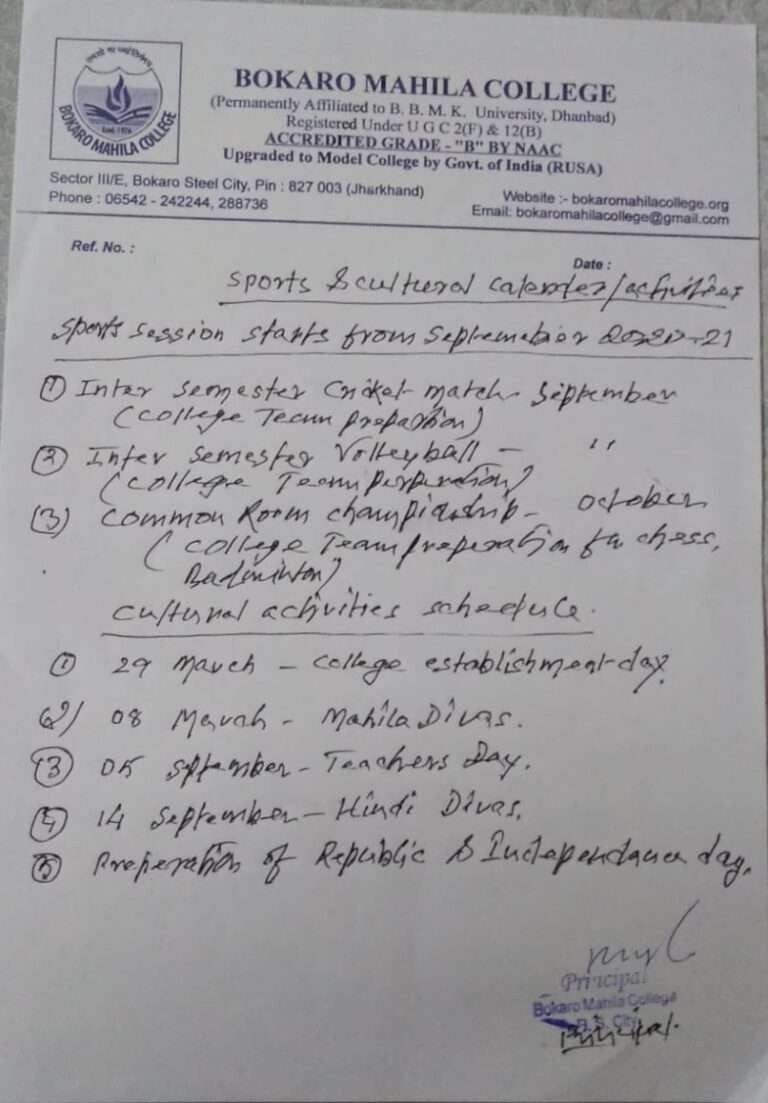 BOKARO MAHILA COLLEGE
Estd. 1976
BOKARO MAHILA COLLEGE
(Permanently Affiliated to B. B. M. K. University, Dhanbad)
Registered Under U G C 2(F) & 12(B)
ACCREDITED GRADE - "B" BY NAAC
Upgraded to Model College by Govt. of India (RUSA)
Sector III/E, Bokaro Steel City, Pin : 827 003 (Jharkhand)
Phone : 06542 - 242244, 288736
Website :- bokaromahilacollege.org
Email: bokaromahilacollege@gmail.com
Ref. No. :
Date :
Sports & cultural calender/activities
Sports session starts from Septemebier 2020-21
① Inter semester Cricket match - September
(college Team preparation)
② Inter semester Volleyball - "
(college Team perperation)
(3) common Room championship - October
(college Team preperation for chess,
Badminton)
cultural activities schedule.
① 29 March - college establishment day.
(2) 08 March - Mahila Divas.
③ 05 Sptember - Teachers Day.
④ 14 September - Hindi Divas.
⑤ Preperation of Republic & Independance day.
Principal
Bokaro Mahila College
B. S. City
Principal.